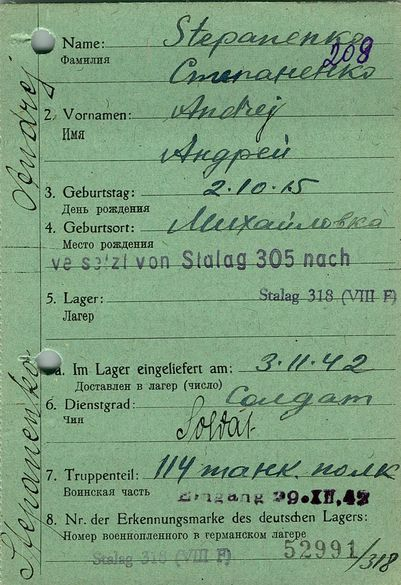 1. Name: Stepanenko
Фамилия 208
Степаненко
2. Vornamen: Andrej
Имя
Андрей
3. Geburtstag: 2.10.15
День рождения
4. Geburtsort: Михайловка
Место рождения
ve setzt von Stalag 305 nach
5. Lager: Stalag 318 (VIII F)
Лагер
a. Im Lager eingeliefert am: 3.11.42
Доставлен в лагер (число)
6. Dienstgrad: Солдат
Чин Soldat
7. Truppenteil: 114 танк. полк
Воинская часть Eingang 29.XII.42
8. Nr. der Erkennungsmarke des deutschen Lagers:
Номер военнопленного в германском лагере
Stalag 318 (VIII F) 52991/318
Stepanenko Andrej